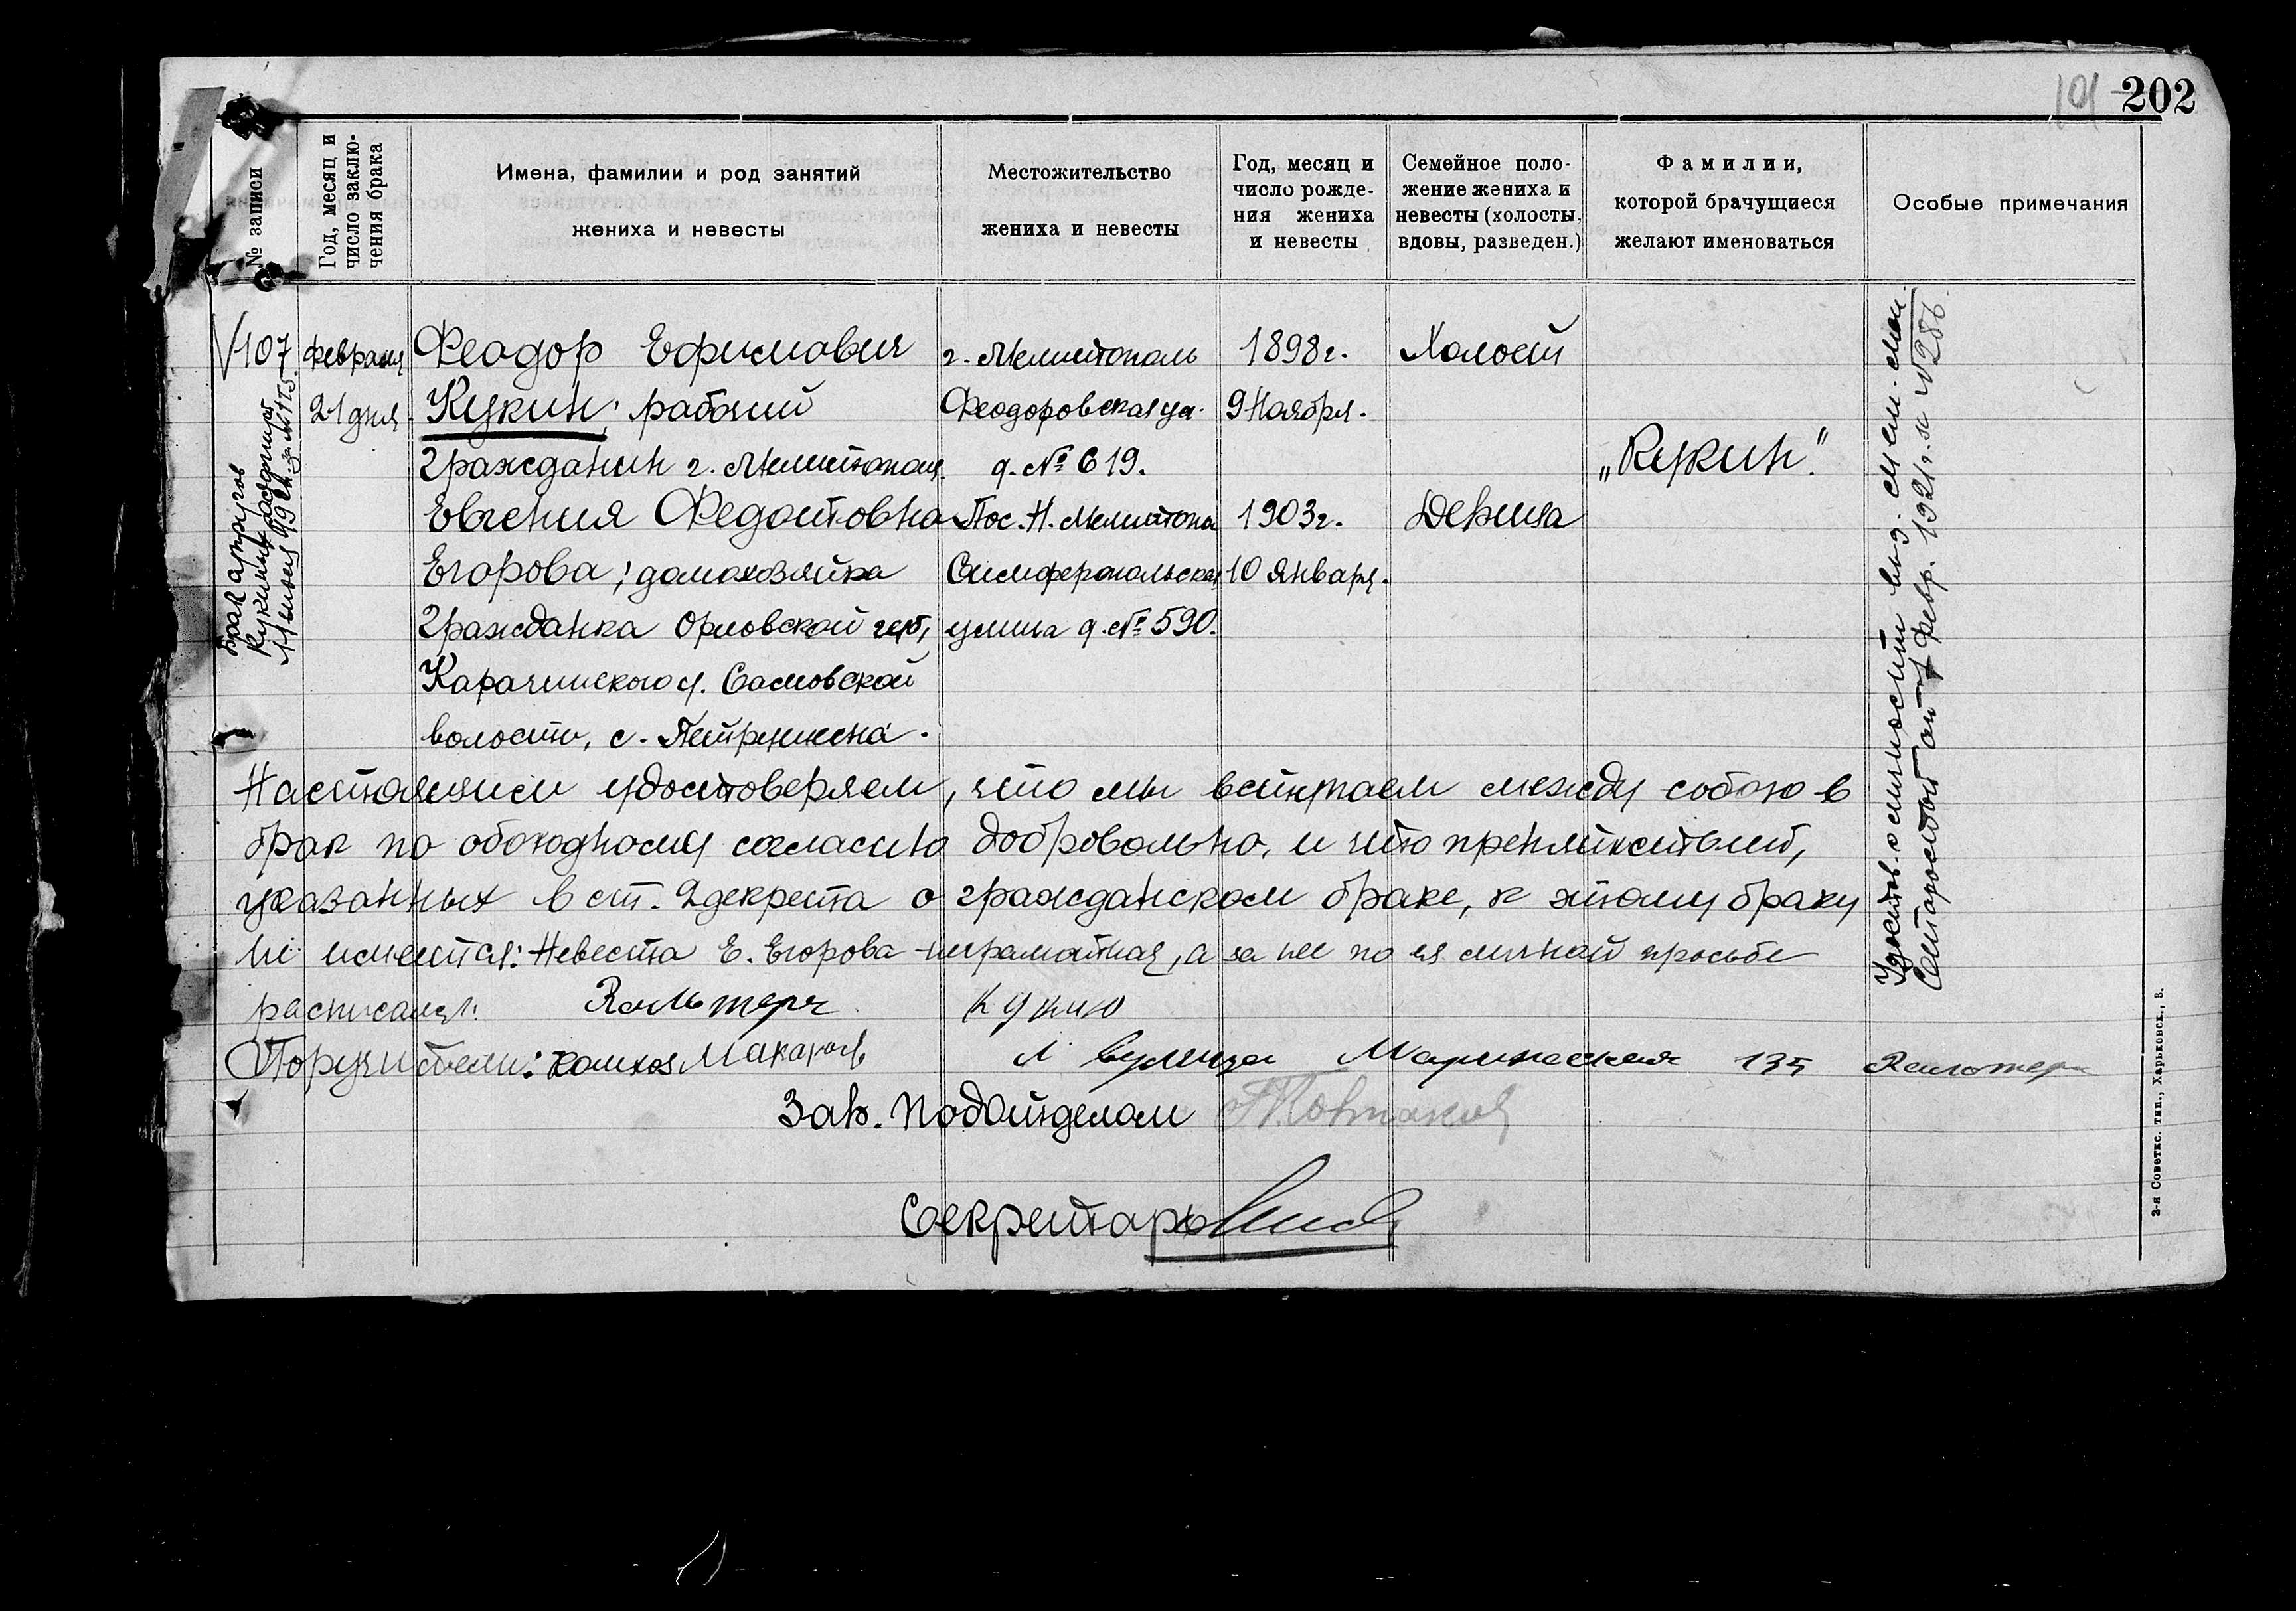 101 202
№ записи
Год, месяц и
число заклю-
чения брака
Имена, фамилии и род занятий
жениха и невесты
Местожительство
жениха и невесты
Год, месяц и
число рожде-
ния жениха
и невесты
Семейное поло-
жение жениха и
невесты (холосты,
вдовы, разведен.)
Фамилии,
которой брачущиеся
желают именоваться
Особые примечания
107
Февраля
21 дня
Брак супругов
Кукиных расторгнут
1924 г. за № 115
Феодор Ефимович
Кукин; рабочий
гражданин г. Мелитополя.
Евгения Федотовна
Егорова; домохозяйка
гражданка Орловской губ,
Карачинского у.
волости, с.
г. Мелитополь
Феодоровская ул.
д. № 619.
Пос. Н. Мелитопол
Симферопольская
улица д. № 590.
1898 г.
9 Ноября.
1903 г.
10 Января.
Холост
Девица
„Кукин".
Удостов. о личности выд.
от февр. 1921 г. за № 286.
Настоящим удостоверяем, что мы вступаем между собою в
брак по обоюдному согласию добровольно, и что препятствий,
указанных в ст. 2 декрета о гражданском браке, к этому браку
не имеется: Невеста Е. Егорова - неграмотная, а за нее по ея личной просьбе
расписался: Кукин
Поручители: Макаров 135
Зав. Подотделом
Секретарь
2-я Советск. тип., Харьковск., 3.